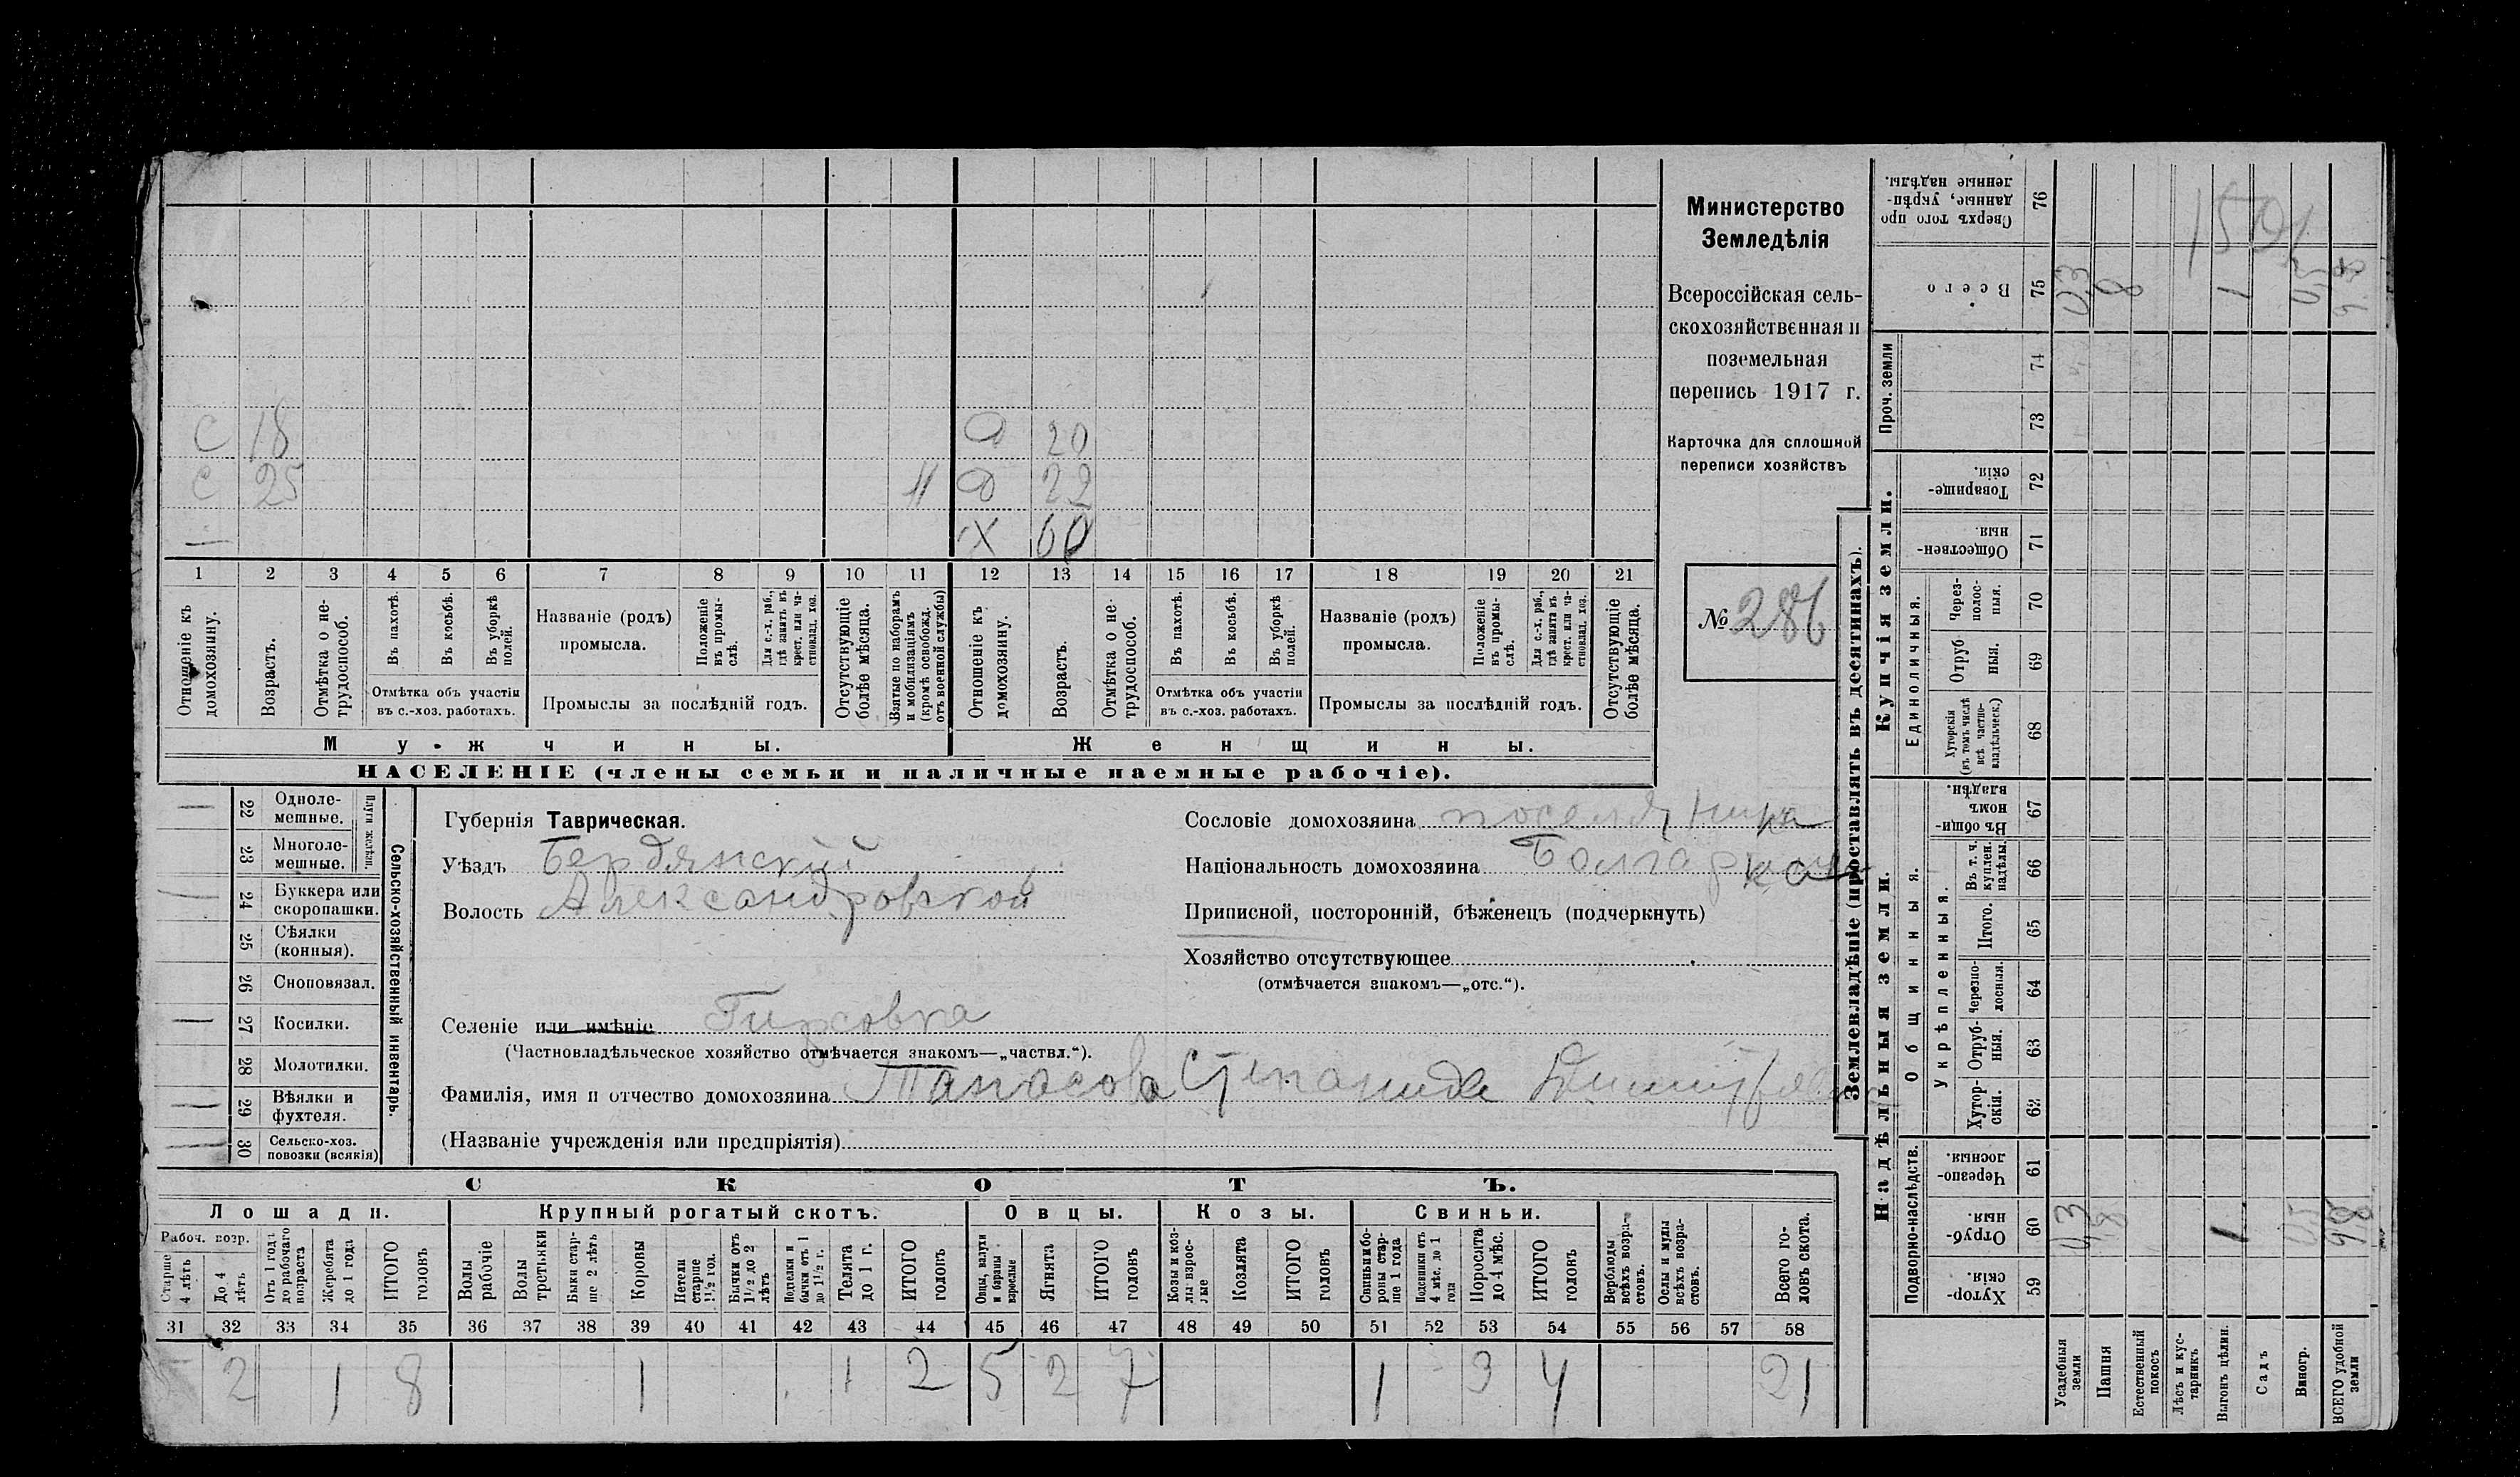 Министерство
Земледѣлія
Всероссійская сель-
скохозяйственная и
поземельная
перепись 1917 г.
Карточка для сплошной
переписи хозяйствъ
№ 286
С 18 Д 20
С 25 Д 22
— Х 60
1 2 3 4 5 6 7 8 9 10 11 12 13 14 15 16 17 18 19 20 21
Отношеніе къ домохозяину.
Возрастъ.
Отмѣтка о не-трудоспособ.
Въ пахотѣ.
Въ косьбѣ.
Въ уборкѣ полей.
Отмѣтка объ участіи
въ с.-хоз. работахъ.
Названіе (родъ)
промысла.
Положеніе въ промы-слѣ.
Для с.-х. раб., гдѣ занятъ въ крест. или ча-стновлад. хоз.
Промыслы за послѣдній годъ.
Отсутствующіе болѣе мѣсяца.
Взятые по наборамъ и мобилизаціямъ (кромѣ освобожд. отъ военной службы)
Отношеніе къ домохозяину.
Возрастъ.
Отмѣтка о не-трудоспособ.
Въ пахотѣ.
Въ косьбѣ.
Въ уборкѣ полей.
Отмѣтка объ участіи
въ с.-хоз. работахъ.
Названіе (родъ)
промысла.
Положеніе въ промы-слѣ.
Для с.-х. раб., гдѣ занятъ въ крест. или ча-стновлад. хоз.
Промыслы за послѣдній годъ.
Отсутствующіе болѣе мѣсяца.
Мужчины. Женщины.
НАСЕЛЕНІЕ (члены семьи и наличные наемные рабочіе).
Сельско-хозяйственный инвентарь.
Плуги желѣзн.
22 Одноле-мешные.
23 Многоле-мешные.
24 Буккера или скоропашки.
25 Сѣялки (конныя).
26 Сноповязал.
27 Косилки.
28 Молотилки.
29 Вѣялки и фухтеля.
30 Сельско-хоз. повозки (всякія)
Губернія Таврическая.
Уѣздъ Бердянскій
Волость Александровской
Селеніе или имѣніе Гирсовка
(Частновладѣльческое хозяйство отмѣчается знакомъ—„частвл.“).
Фамилія, имя и отчество домохозяина Танасова Степанида
(Названіе учрежденія или предпріятія)
Сословіе домохозяина поселянка
Національность домохозяина Болгарка
Приписной, посторонній, бѣженецъ (подчеркнуть)
Хозяйство отсутствующее
(отмѣчается знакомъ—„отс.“).
СКОТЪ.
Лошади. Крупный рогатый скотъ. Овцы. Козы. Свиньи.
Рабоч. возр.
Старше 4 лѣтъ
До 4 лѣтъ
Отъ 1 года до рабочаго возраста
Жеребята до 1 года
ИТОГО головъ
Волы рабочіе
Волы третьяки
Быки стар-ше 2 лѣтъ
Коровы
Нетели старше 1½ год.
Бычки отъ 1½ до 2 лѣтъ
Подтелки и бычки отъ 1 до 1½ г.
Телята до 1 г.
ИТОГО головъ
Овцы, валухи и бараны взрослые
Ягнята
ИТОГО головъ
Козы и коз-лы взрос-лые
Козлята
ИТОГО головъ
Свиньи и бо-ровы стар-ше 1 года
Подсвинки отъ 4 мѣс. до 1 года
Поросята до 4 мѣс.
ИТОГО головъ
Верблюды всѣхъ возра-стовъ.
Ослы и мулы всѣхъ возра-стовъ.
Всего го-ловъ скота.
31 32 33 34 35 36 37 38 39 40 41 42 43 44 45 46 47 48 49 50 51 52 53 54 55 56 57 58
2 1 8 1 1 2 5 2 7 1 3 4 21
Землевладѣніе (проставлять въ десятинахъ).
Надѣльныя земли. Купчія земли. Проч. земли
Подворно-наслѣдств. Общинныя. Единоличныя.
Укрѣпленныя.
59 Хутор-скія.
60 Отруб-ныя.
61 Черезпо-лосныя.
62 Хутор-скія.
63 Отруб-ныя.
64 Черезпо-лосныя.
65 Итого.
66 Въ т. ч. куплен. надѣлы.
67 Въ общи-номъ владѣн.
68 Хуторскія (въ томъ числѣ всѣ частно-владѣльческ.)
69 Отруб ныя.
70 Через-полос-ныя.
71 Обществен-ныя
72 Товарище-скія.
73
74
75 Всего
76 Сверхъ того про данные, укрѣп-ленные надѣлы.
Усадебныя земли
Пашня
Естественный покосъ
Лѣсъ и кус-тарникъ
Выгонъ цѣлин.
Садъ
Виногр.
ВСЕГО удобной земли
0,3 8 1 0,5 9,8
0,3 8 1 0,5 9,8